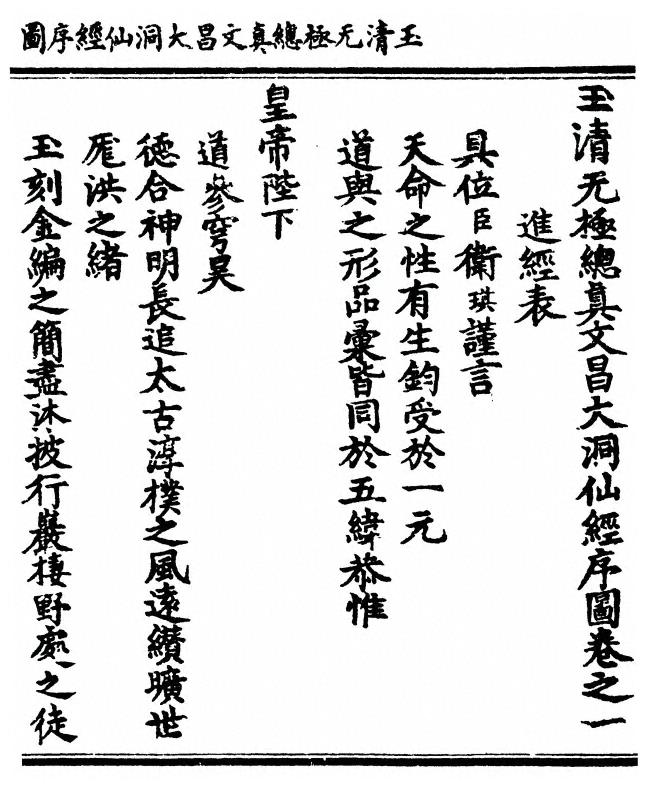 玉清无極緫真文昌大洞仙經序圖
玉清无極緫真文昌大洞仙經序圖卷之一
進經表
具位臣衛琪謹言
天命之性有生鈞受於一元
道與之形品彙皆同於五緯恭惟
皇帝陛下
道參穹昊
德合神明長追太古淳樸之風遠纘曠世
厖洪之緒
玉刻金編之簡盡沐披行巖棲野處之徒